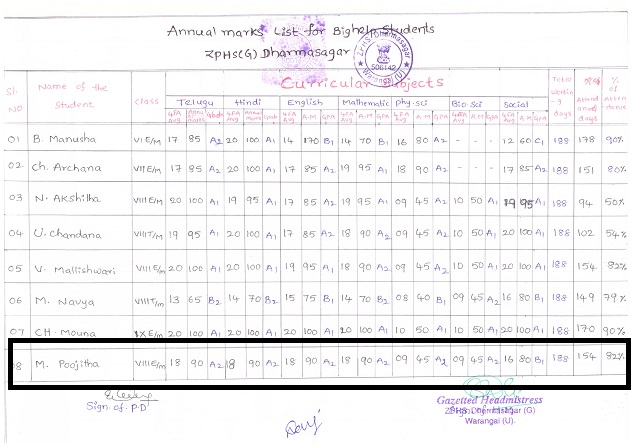 Annual marks List for Bighelp Students
ZPHS(G) Dharmasagar
ZPHS Dharmasagar
506142
Warangal (U)
Curricular Subjects
Sl. NO Name of the Student Class Telugu Hindi English Mathematic phy.sci Bio.Sci Social Total working days % of attendence
01 B. Manusha VII E/m 17 85 A2 20 100 A1 14 170 B1 14 70 B1 16 80 A2 - - - 12 60 C1 188 178 90%
02 Ch. Archana VII E/m 17 85 A2 20 100 A1 17 85 A2 19 95 A1 18 90 A2 - - - 17 85 A2 188 151 80%
03 N. Akshitha VIII E/m 20 100 A1 19 95 A1 17 85 A2 19 95 A1 09 45 A2 10 50 A1 19 95 A1 188 94 50%
04 U. Chandana VIII T/m 19 95 A1 20 100 A1 17 85 A2 18 90 A2 09 45 A2 10 50 A1 20 100 A1 188 102 54%
05 V. Mallishwari VIII E/m 20 100 A1 20 100 A1 19 95 A1 18 90 A2 09 45 A2 10 50 A1 20 100 A1 188 154 82%
06 M. Navya VIII T/m 13 65 B2 14 70 B2 15 75 B1 14 70 B2 08 40 B1 09 45 A2 16 80 B1 188 149 79%
07 CH. Mouna IX E/m 20 100 A1 20 100 A1 20 100 A1 20 100 A1 10 50 A1 10 50 A1 20 100 A1 188 170 90%
08 M. Poojitha VIII E/m 18 90 A2 18 90 A2 18 90 A2 18 90 A2 09 45 A2 09 45 A2 16 80 B1 188 154 82%
Sign. of. P.D
Gazetted Headmistress
ZPHS Dharmasagar (G)
Warangal (U).